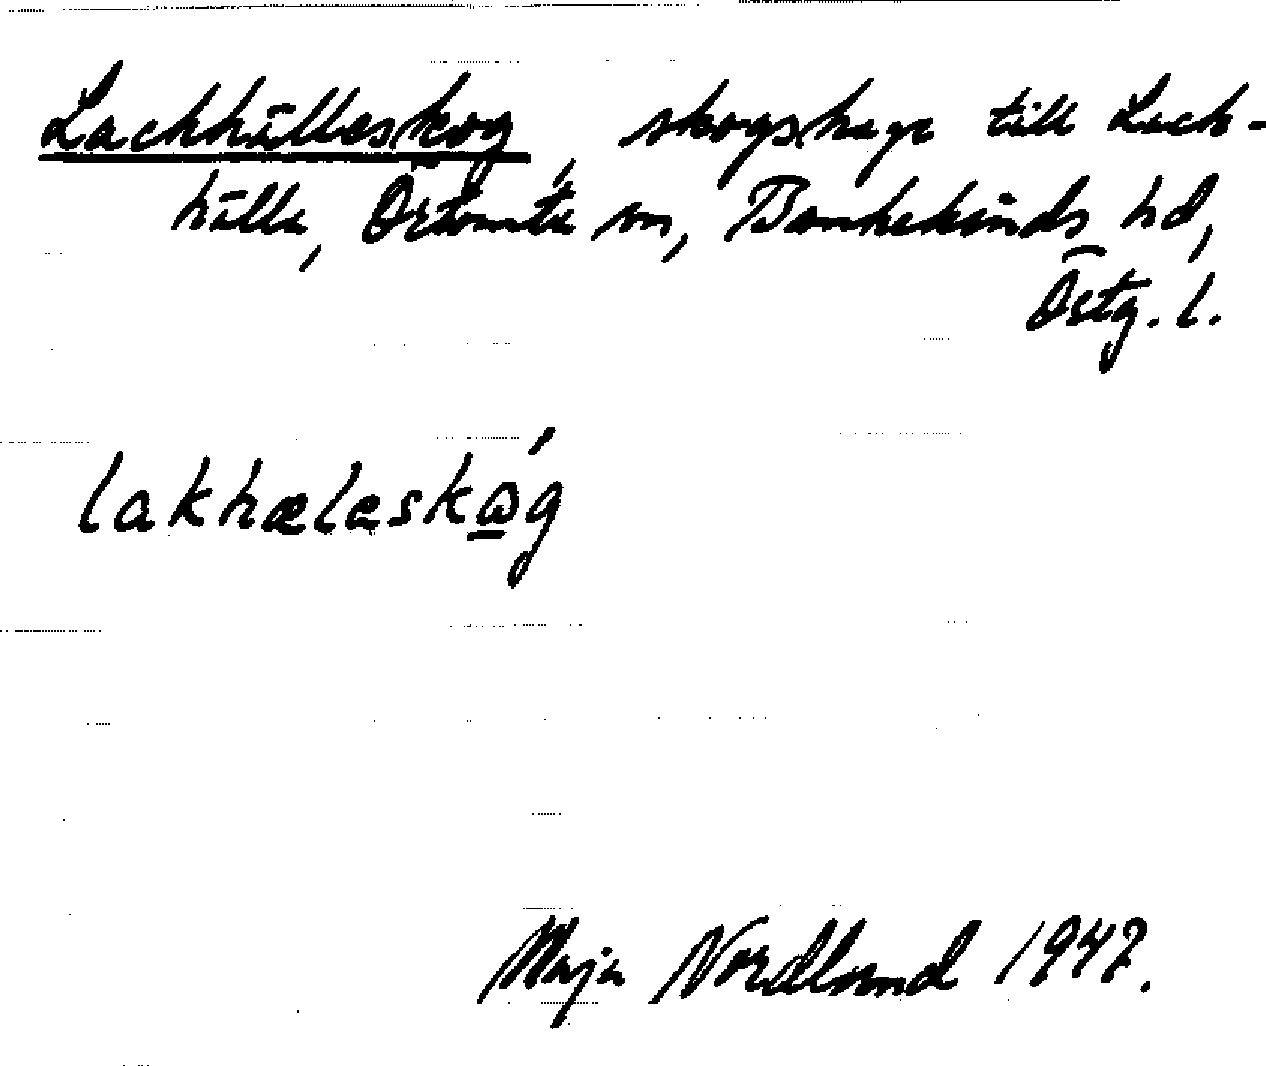 Lachhälleskog, skogshage till Lach-
hälle, Örtomta sn, Bankekinds hd,
Östg. l.
lakhælæskɷ́g
Maja Nordlund 1947.